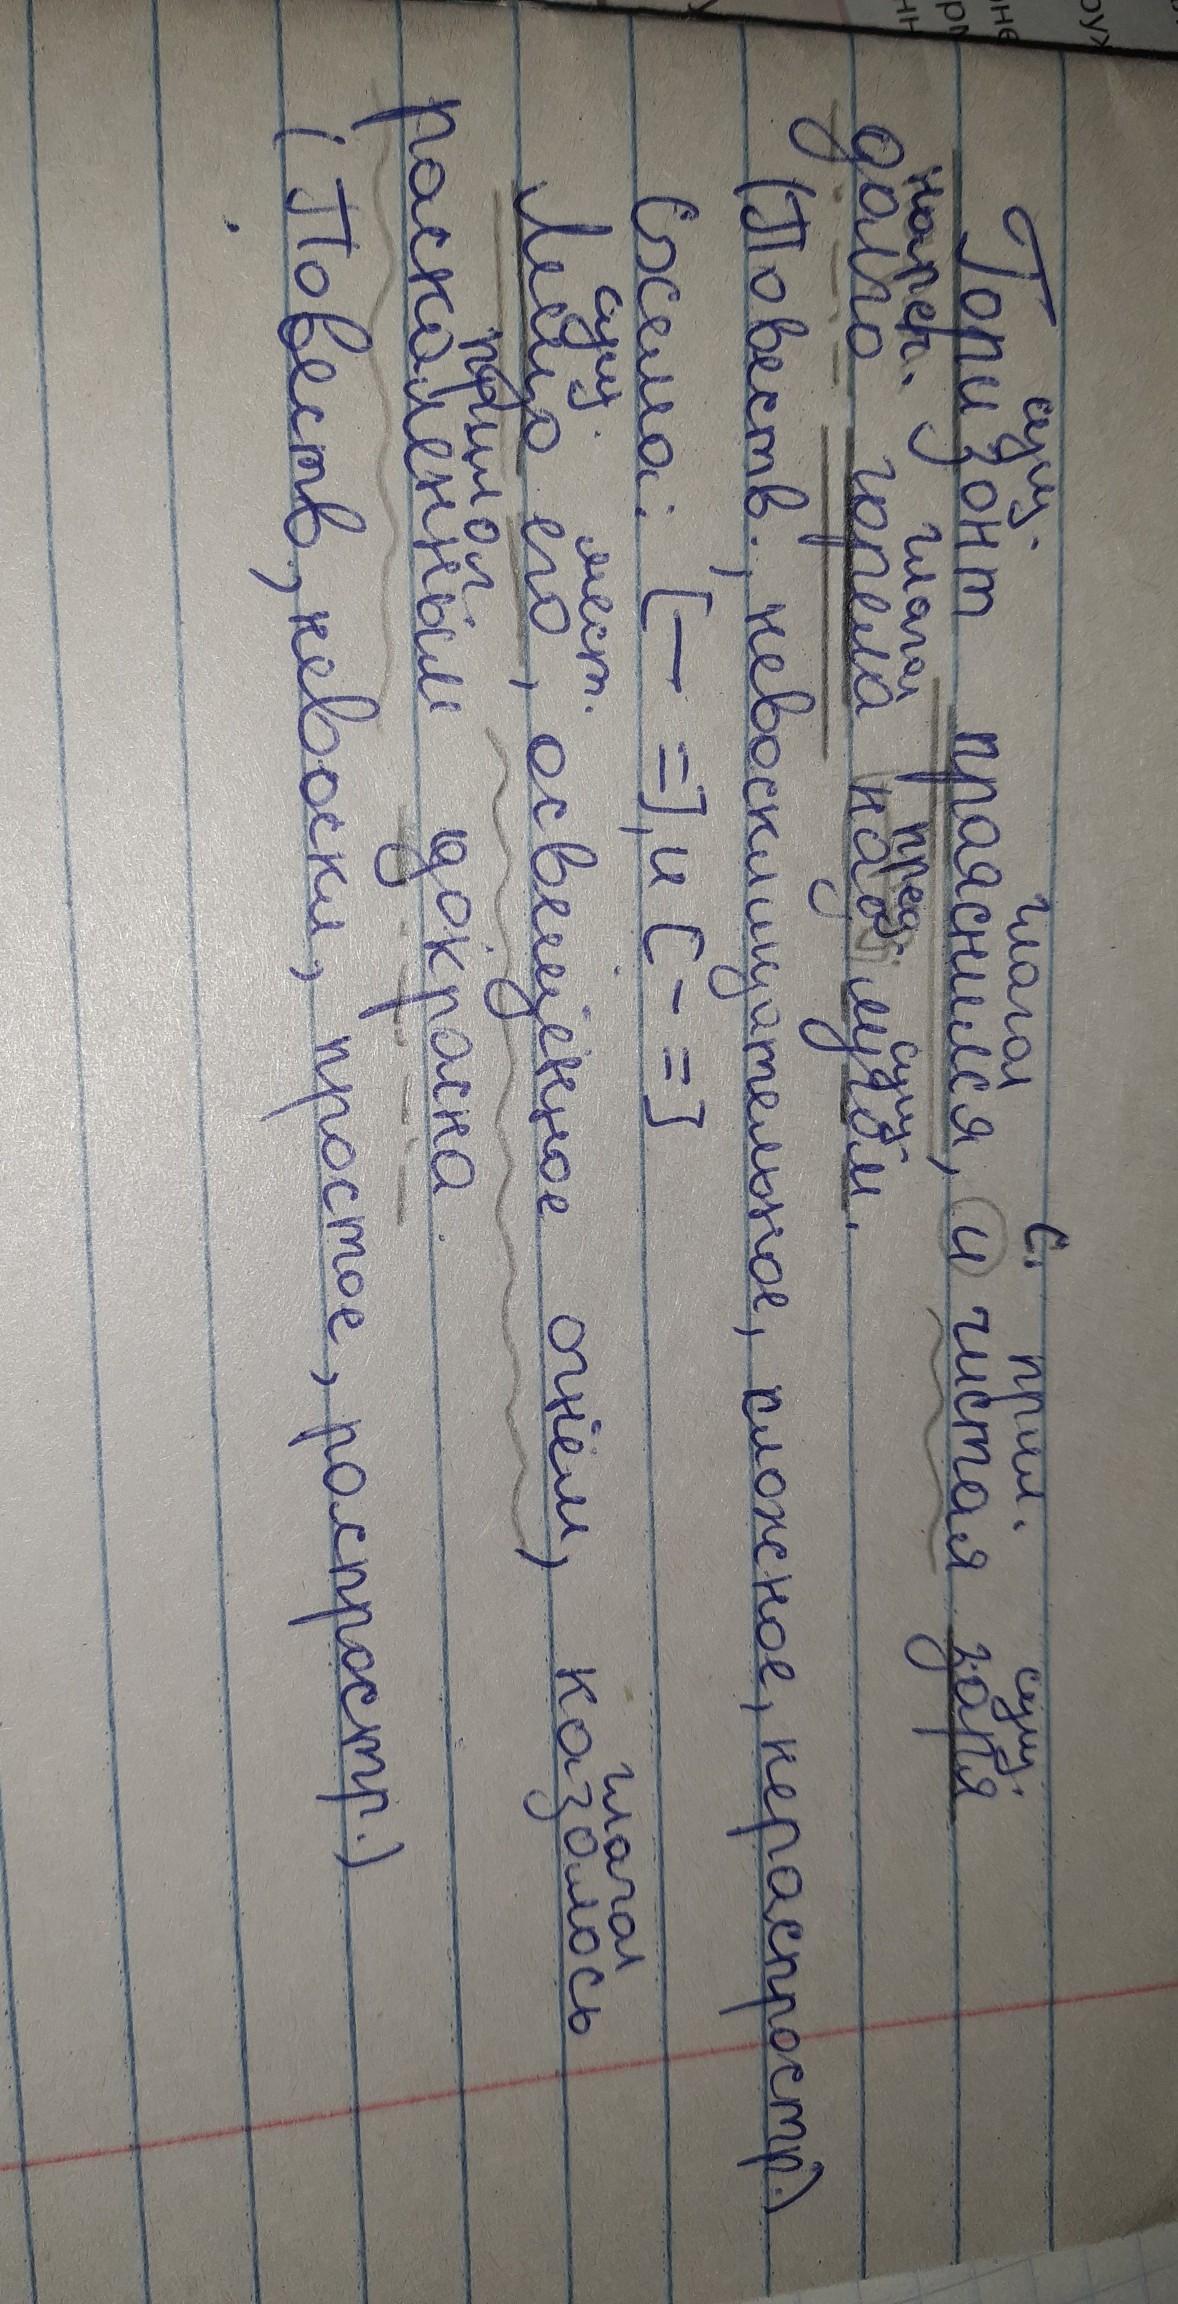 сущ. глагол С. прил. сущ.
Горизонт прояснился, и чистая заря
нареч. глагол пред. сущ.
долго горела над лугом.
(Повеств., невосклицательное, сложное, нераспростр.)
Схема: [— =], и [- =]
сущ. мест. глагол
Лицо его, освещённое огнём, казалось
прилог
раскаленным докрасна.
(Повеств, невоскл, простое, распростр.)